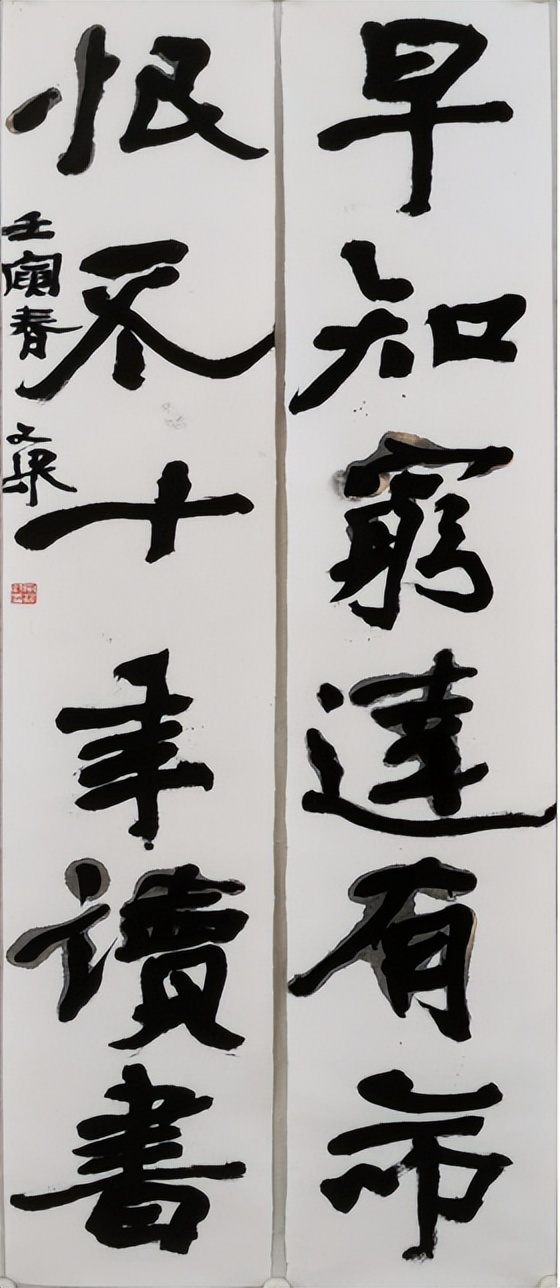 早知窮達有命
恨不十年讀書
壬寅春